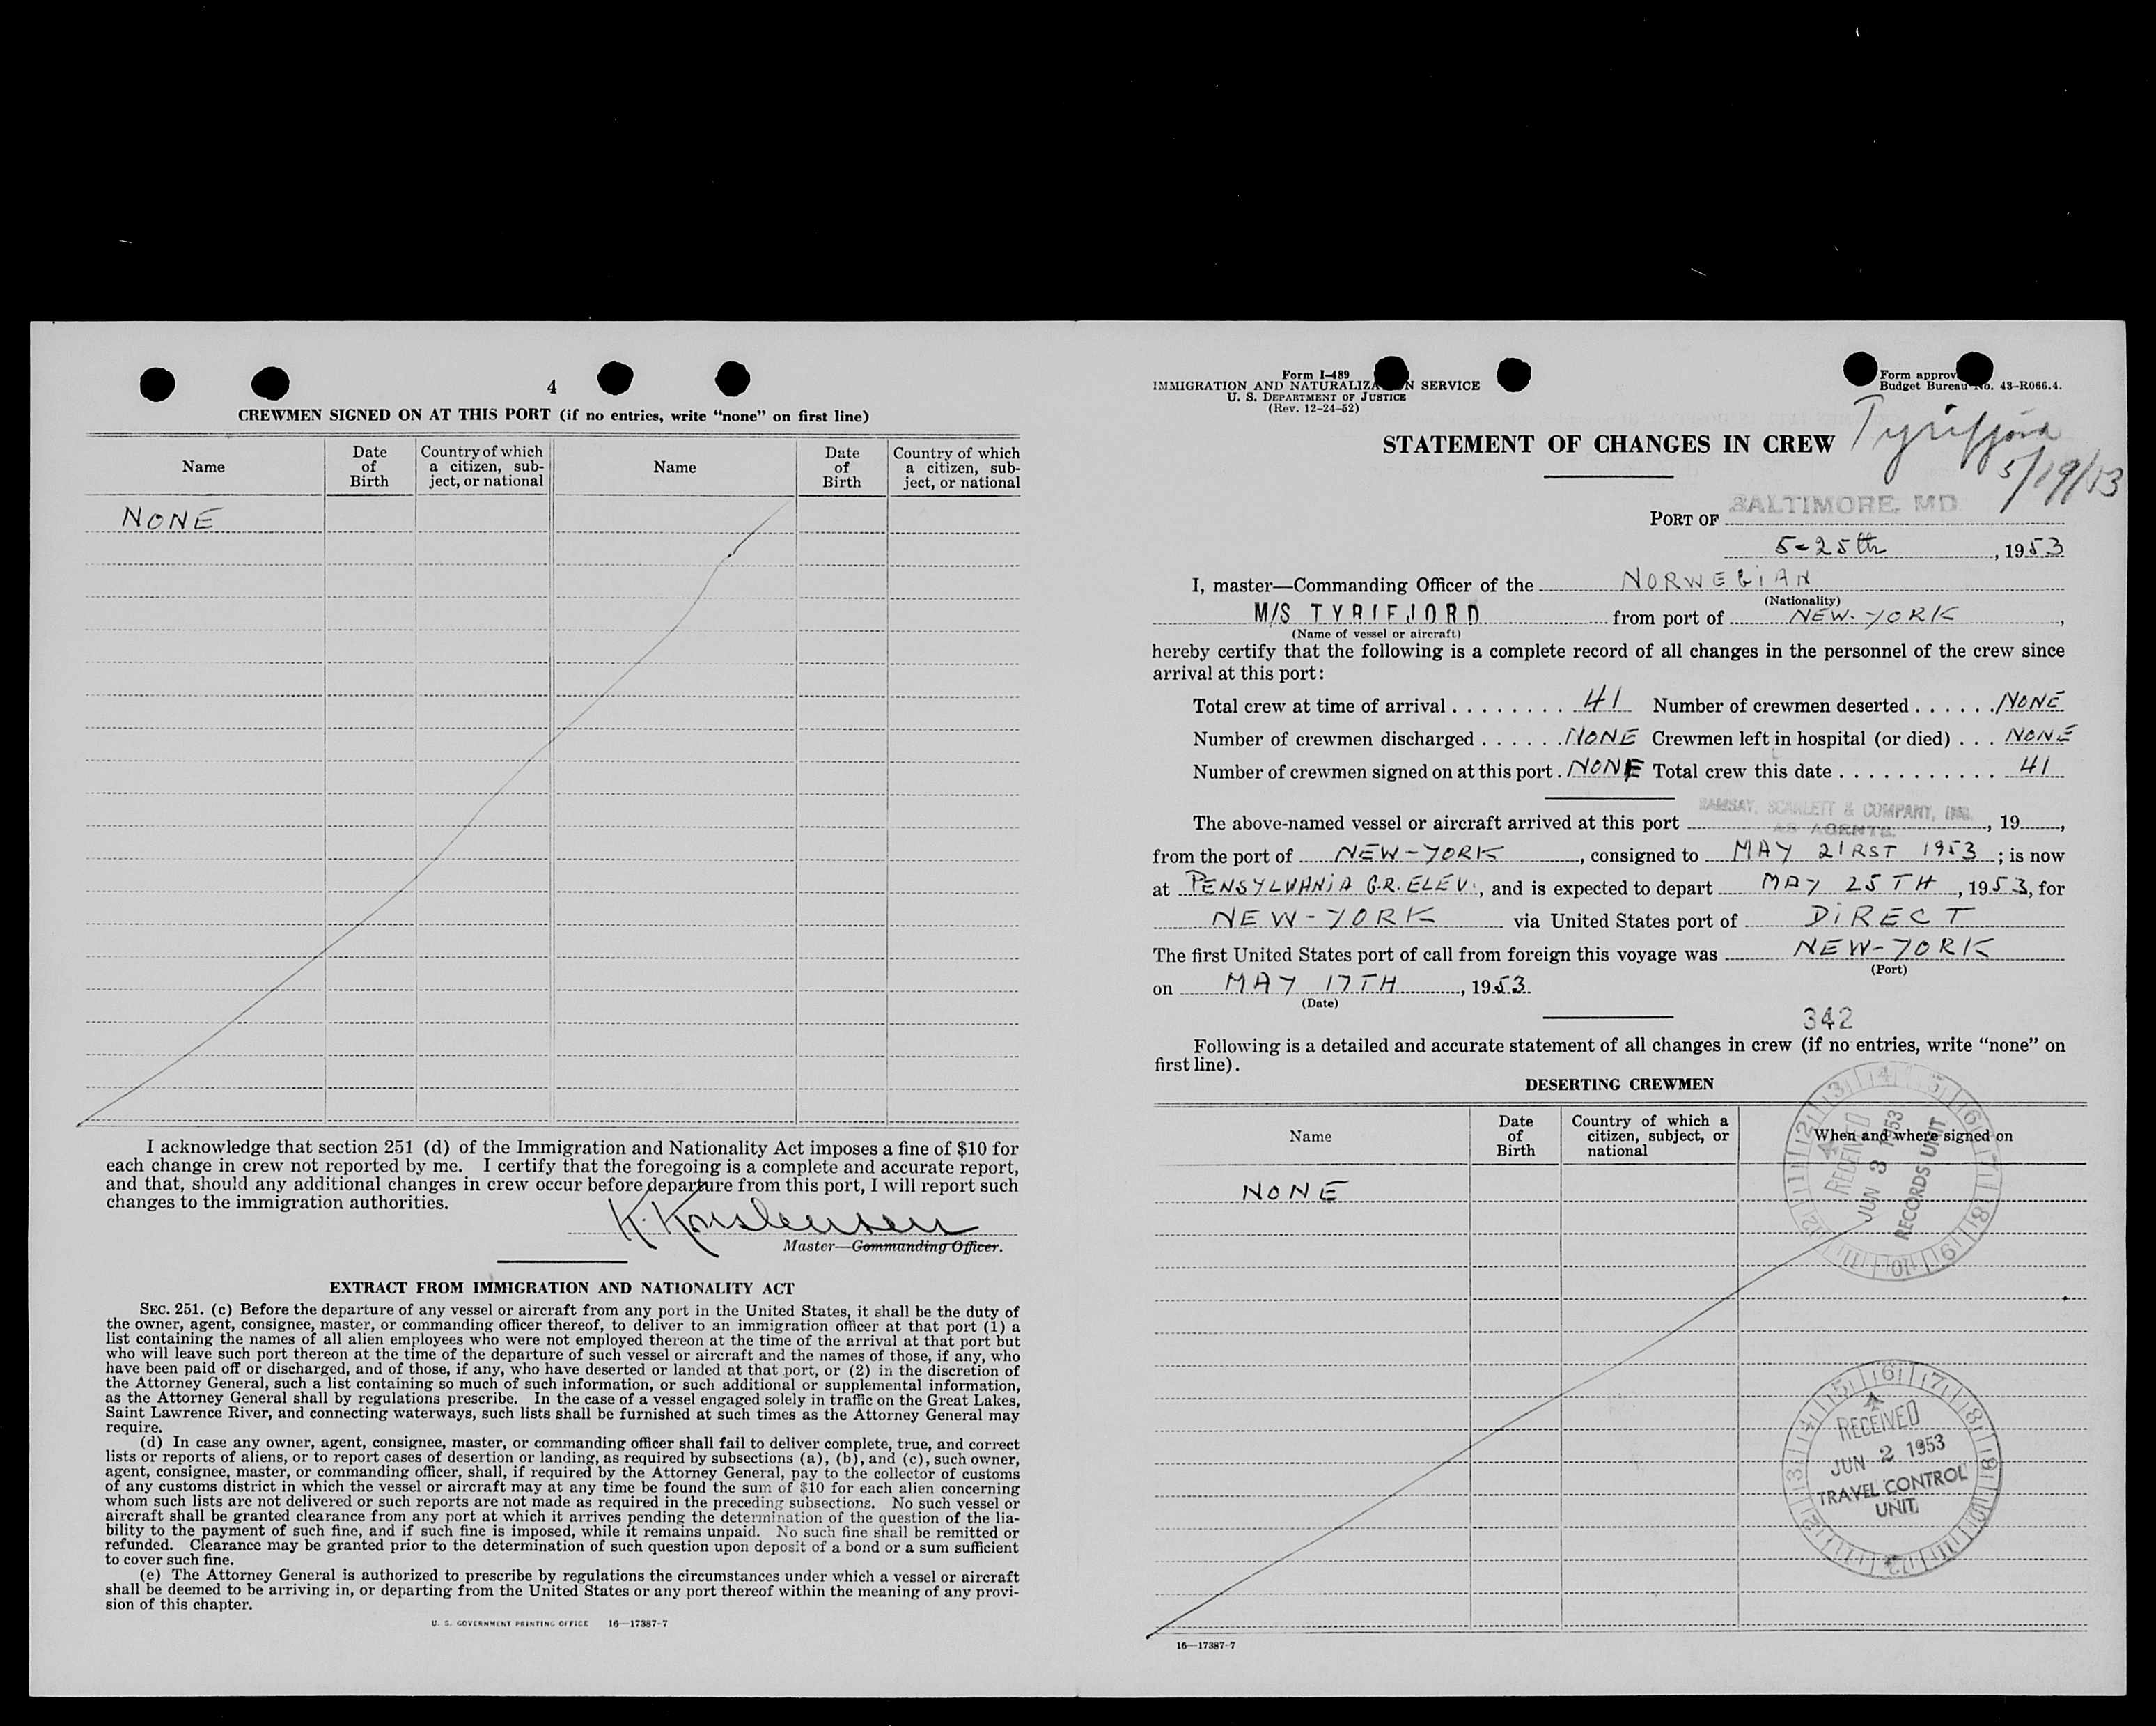 4
CREWMEN SIGNED ON AT THIS PORT (if no entries, write “none” on first line)
Name Date of Birth Country of which a citizen, subject, or national Name Date of Birth Country of which a citizen, subject, or national
NONE
I acknowledge that section 251 (d) of the Immigration and Nationality Act imposes a fine of $10 for
each change in crew not reported by me. I certify that the foregoing is a complete and accurate report,
and that, should any additional changes in crew occur before departure from this port, I will report such
changes to the immigration authorities.
Master—Commanding Officer.
EXTRACT FROM IMMIGRATION AND NATIONALITY ACT
SEC. 251. (c) Before the departure of any vessel or aircraft from any port in the United States, it shall be the duty of
the owner, agent, consignee, master, or commanding officer thereof, to deliver to an immigration officer at that port (1) a
list containing the names of all alien employees who were not employed thereon at the time of the arrival at that port but
who will leave such port thereon at the time of the departure of such vessel or aircraft and the names of those, if any, who
have been paid off or discharged, and of those, if any, who have deserted or landed at that port, or (2) in the discretion of
the Attorney General, such a list containing so much of such information, or such additional or supplemental information,
as the Attorney General shall by regulations prescribe. In the case of a vessel engaged solely in traffic on the Great Lakes,
Saint Lawrence River, and connecting waterways, such lists shall be furnished at such times as the Attorney General may
require.
(d) In case any owner, agent, consignee, master, or commanding officer shall fail to deliver complete, true, and correct
lists or reports of aliens, or to report cases of desertion or landing, as required by subsections (a), (b), and (c), such owner,
agent, consignee, master, or commanding officer, shall, if required by the Attorney General, pay to the collector of customs
of any customs district in which the vessel or aircraft may at any time be found the sum of $10 for each alien concerning
whom such lists are not delivered or such reports are not made as required in the preceding subsections. No such vessel or
aircraft shall be granted clearance from any port at which it arrives pending the determination of the question of the lia-
bility to the payment of such fine, and if such fine is imposed, while it remains unpaid. No such fine shall be remitted or
refunded. Clearance may be granted prior to the determination of such question upon deposit of a bond or a sum sufficient
to cover such fine.
(e) The Attorney General is authorized to prescribe by regulations the circumstances under which a vessel or aircraft
shall be deemed to be arriving in, or departing from the United States or any port thereof within the meaning of any provi-
sion of this chapter.
U. S. GOVERNMENT PRINTING OFFICE 16—17387-7
Form I-489
IMMIGRATION AND NATURALIZATION SERVICE
U. S. DEPARTMENT OF JUSTICE
(Rev. 12-24-52)
Form approv
Budget Bureau No. 43-R066.4.
Tyrifjord
STATEMENT OF CHANGES IN CREW
PORT OF BALTIMORE, MD
5-25th, 1953
I, master—Commanding Officer of the NORWEGIAN
(Nationality)
M/S TYRIFJORD from port of NEW-YORK,
(Name of vessel or aircraft)
hereby certify that the following is a complete record of all changes in the personnel of the crew since
arrival at this port:
Total crew at time of arrival . . . . . . . . 41 Number of crewmen deserted . . . . . . NONE
Number of crewmen discharged . . . . . . NONE Crewmen left in hospital (or died) . . . NONE
Number of crewmen signed on at this port . NONE Total crew this date . . . . . . . . . . . . 41
RAMSAY, SCARLETT & COMPANY, INC.
The above-named vessel or aircraft arrived at this port AS AGENTS, 19 ,
from the port of NEW-YORK, consigned to MAY 21RST 1953; is now
at PENSYLVANIA G.R. ELEV., and is expected to depart MAY 25TH, 1953, for
NEW-YORK via United States port of DIRECT
The first United States port of call from foreign this voyage was NEW-YORK
(Port)
on MAY 17TH, 1953.
(Date)
342
Following is a detailed and accurate statement of all changes in crew (if no entries, write “none” on
first line).
DESERTING CREWMEN
Name Date of Birth Country of which a citizen, subject, or national When and where signed on
NONE
RECEIVED
JUN 3 1953
RECORDS UNIT
RECEIVED
JUN 2 1953
TRAVEL CONTROL
UNIT
16—17387-7